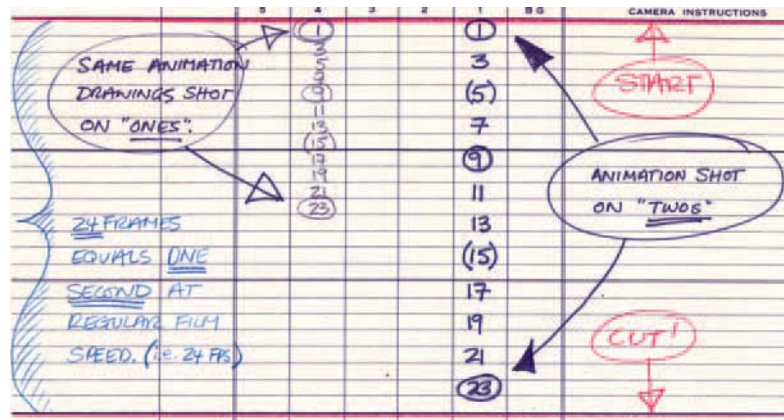 5 4 3 2 1 BG CAMERA INSTRUCTIONS
SAME ANIMATION
DRAWINGS SHOT
ON "ONES".
1
3
5
7
9
11
13
(15)
17
19
21
23
1
3
(5)
7
9
11
13
(15)
17
19
21
23
START
ANIMATION SHOT
ON "TWOS"
CUT!
24 FRAMES
EQUALS ONE
SECOND AT
REGULAR FILM
SPEED. (i.e. 24 FPS)